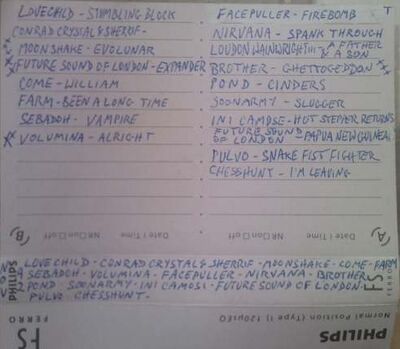 LOVECHILD - STUMBLING BLOCK
CONRAD CRYSTAL & SHERRIF -
MOONSHAKE - EVOLUNAR
FUTURE SOUND OF LONDON - EXPANDER
COME - WILLIAM
FARM - BEEN A LONG TIME
SEBADOH - VAMPIRE
VOLUMINA - ALRIGHT
FACEPULLER - FIREBOMB
NIRVANA - SPANK THROUGH
LOUDON WAINWRIGHT III - A FATHER & A SON
BROTHER - GHETTOGEDDON
POND - CINDERS
SOONARMY - SLUGGER
INI CAMOSE - HOT STEPPER RETURNS
FUTURE SOUND OF LONDON - PAPUA NEW GUINEA
PULVO - SNAKE FIST FIGHTER
CHESSHUNT - I'M LEAVING
T
B Date / Time NR On Off
A Date / Time NR On Off
LOVECHILD - CONRAD CRYSTAL & SHERRIF - MOONSHAKE - COME - FARM
SEBADOH - VOLUMINA - FACEPULLER - NIRVANA - BROTHER
POND - SOONARMY - INI CAMOSI - FUTURE SOUND OF LONDON -
PULVO - CHESSHUNT -
PHILIPS
FERRO
FS
FS
FERRO
Normal Position (Type I) 120µsEQ
PHILIPS